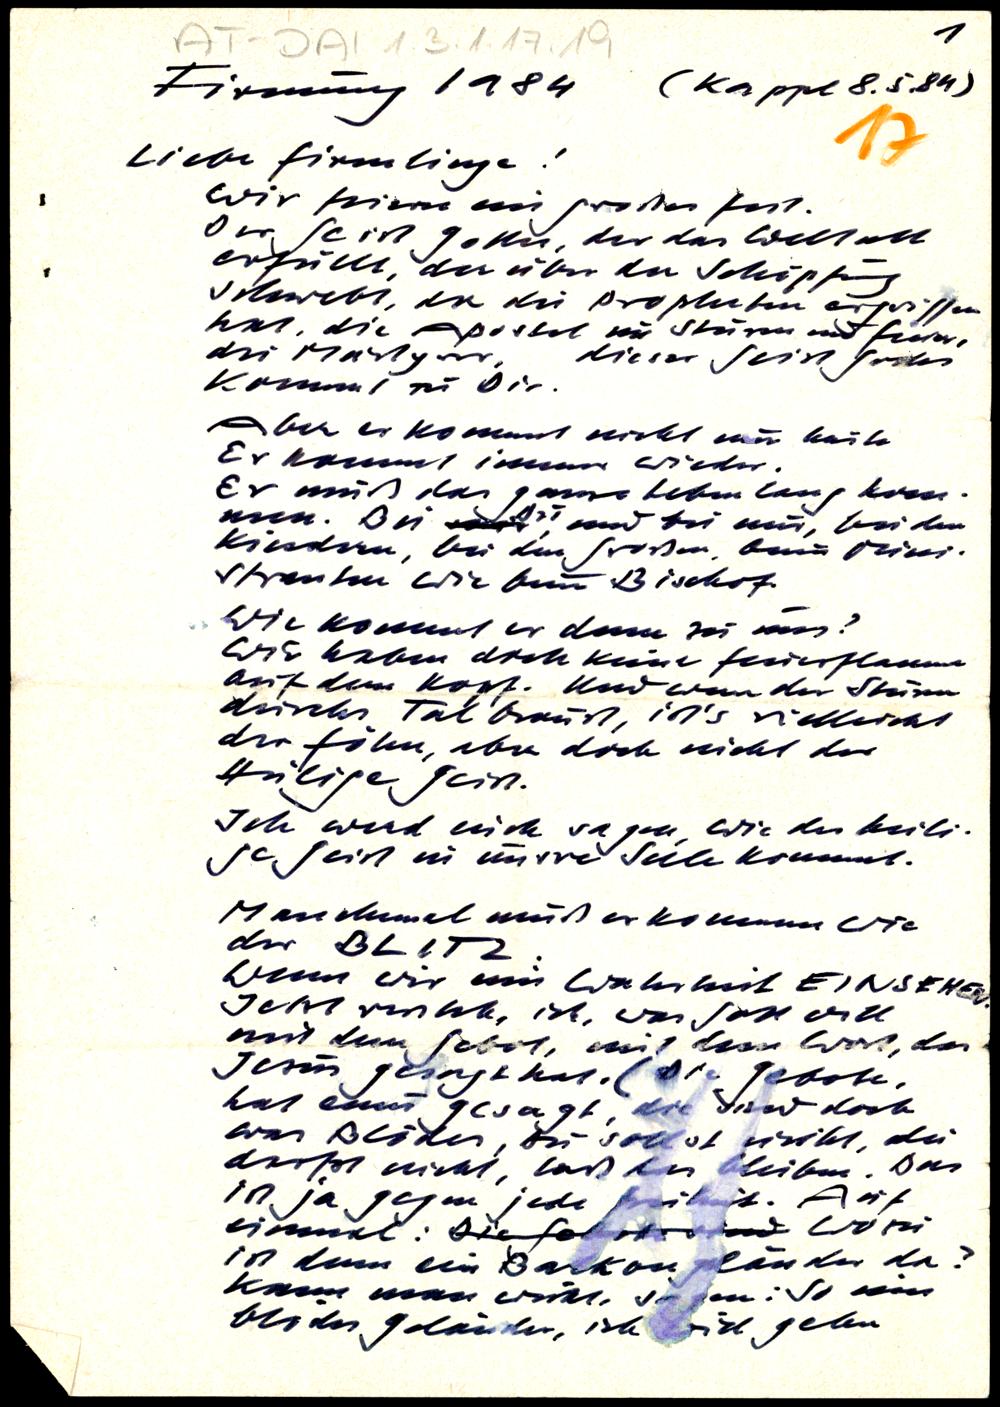 AT-DAI 1.3.1.17.19
1
Firmung 1984 (Kappl 8.5.84)
17
Liebe Firmlinge!
Wir feiern ein großes Fest.
Der Geist Gottes, der das Weltall
erfüllt, der über der Schöpfung
schwebt, der die Propheten ergriffen
hat, die Apostel in Sturm und Feuer,
die Märtyrer, dieser Geist Gottes
kommt zu Dir.
Aber er kommt nicht nur heute
Er kommt immer wieder.
Er muß das ganze Leben lang kom-
men. Bei Dir und bei mir, bei den
Kindern, bei den Großen, beim Mini-
stranten wie beim Bischof.
Wie kommt er denn zu uns?
Wir haben doch keine Feuerflamme
auf dem Kopf. Und wenn der Sturm
durchs Tal braust, ist's vielleicht
der Föhn, aber doch nicht der
Heilige Geist.
Ich werd euch sagen, wie der heili-
ge Geist in unsre Seele kommt.
Manchmal muß er kommen wie
der BLITZ.
Wenn wir eine Wahrheit EINSEHEN.
Jetzt versteh, ich, was Gott will
mit dem Gebot, mit dem Wort, das
Jesus gesagt hat. (Die Gebote,
hat einer gesagt, die sind doch
was Blödes, du sollst nicht, du
darfst nicht, laß das bleiben. Das
ist ja gegen jede Freiheit. Auf
einmal: Die Gebote sind Wozu
ist denn ein Balkongeländer da?
Kann man nicht sagen: So ein
blödes Geländer, ich will gehen